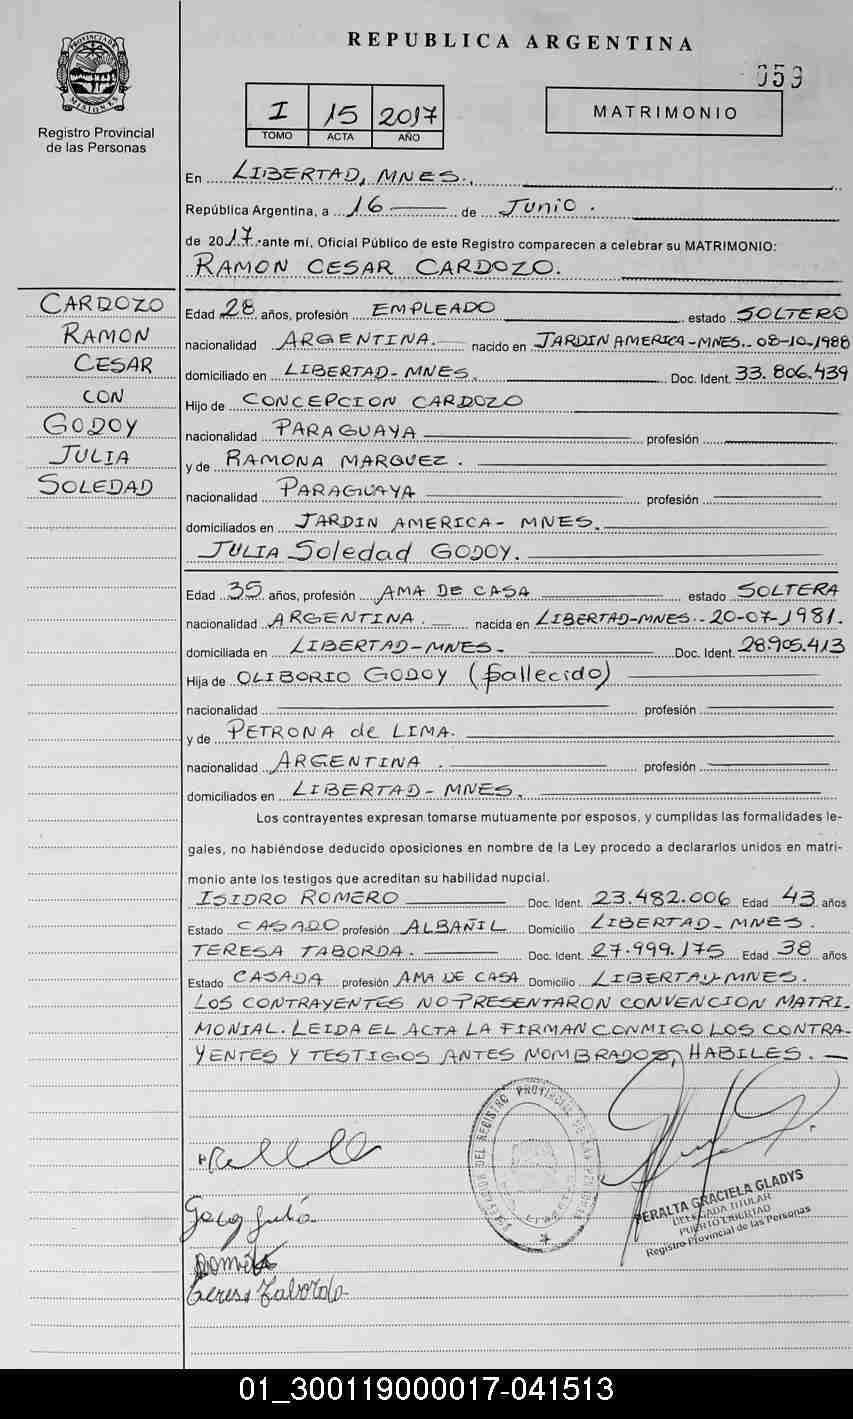 REPUBLICA ARGENTINA
059
PROVINCIA DE MISIONES
Registro Provincial
de las Personas
I 15 2017
TOMO ACTA AÑO
MATRIMONIO
En LIBERTAD, MNES.
República Argentina, a 16 de Junio.
de 2017 ante mí, Oficial Público de este Registro comparecen a celebrar su MATRIMONIO:
RAMON CESAR CARDOZO.
CARDOZO
RAMON
CESAR
CON
GODOY
JULIA
SOLEDAD
Edad 28 años, profesión EMPLEADO estado SOLTERO
nacionalidad ARGENTINA. nacido en JARDIN AMERICA-MNES.. 08-10-1988
domiciliado en LIBERTAD-MNES. Doc. Ident. 33.806.439
Hijo de CONCEPCION CARDOZO
nacionalidad PARAGUAYA profesión
y de RAMONA MARQUEZ.
nacionalidad PARAGUAYA profesión
domiciliados en JARDIN AMERICA- MNES.
JULIA Soledad GODOY.
Edad 35 años, profesión AMA DE CASA estado SOLTERA
nacionalidad ARGENTINA. nacida en LIBERTAD-MNES.. 20-07-1981.
domiciliada en LIBERTAD-MNES. Doc. Ident. 28.905.413
Hija de OLIBORIO GODOY (fallecido)
nacionalidad profesión
y de PETRONA de LIMA.
nacionalidad ARGENTINA. profesión
domiciliados en LIBERTAD- MNES.
Los contrayentes expresan tomarse mutuamente por esposos, y cumplidas las formalidades le-
gales, no habiéndose deducido oposiciones en nombre de la Ley procedo a declararlos unidos en matri-
monio ante los testigos que acreditan su habilidad nupcial.
ISIDRO ROMERO Doc. Ident. 23.482.006 Edad 43 años
Estado CASADO profesión ALBAÑIL Domicilio LIBERTAD- MNES.
TERESA TABORDA. Doc. Ident. 27.999.175 Edad 38 años
Estado CASADA profesión AMA DE CASA Domicilio LIBERTAD-MNES.
LOS CONTRAYENTES NO PRESENTARON CONVENCION MATRI-
MONIAL. LEIDA EL ACTA LA FIRMAN CONMIGO LOS CONTRA-
YENTES Y TESTIGOS ANTES NOMBRADOS, HABILES.
DEL REGISTRO PROVINCIAL DE LAS PERSONAS
PERALTA GRACIELA GLADYS
DELEGADA TITULAR
PUERTO LIBERTAD
Registro Provincial de las Personas
Teresa Taborda
01_300119000017-041513